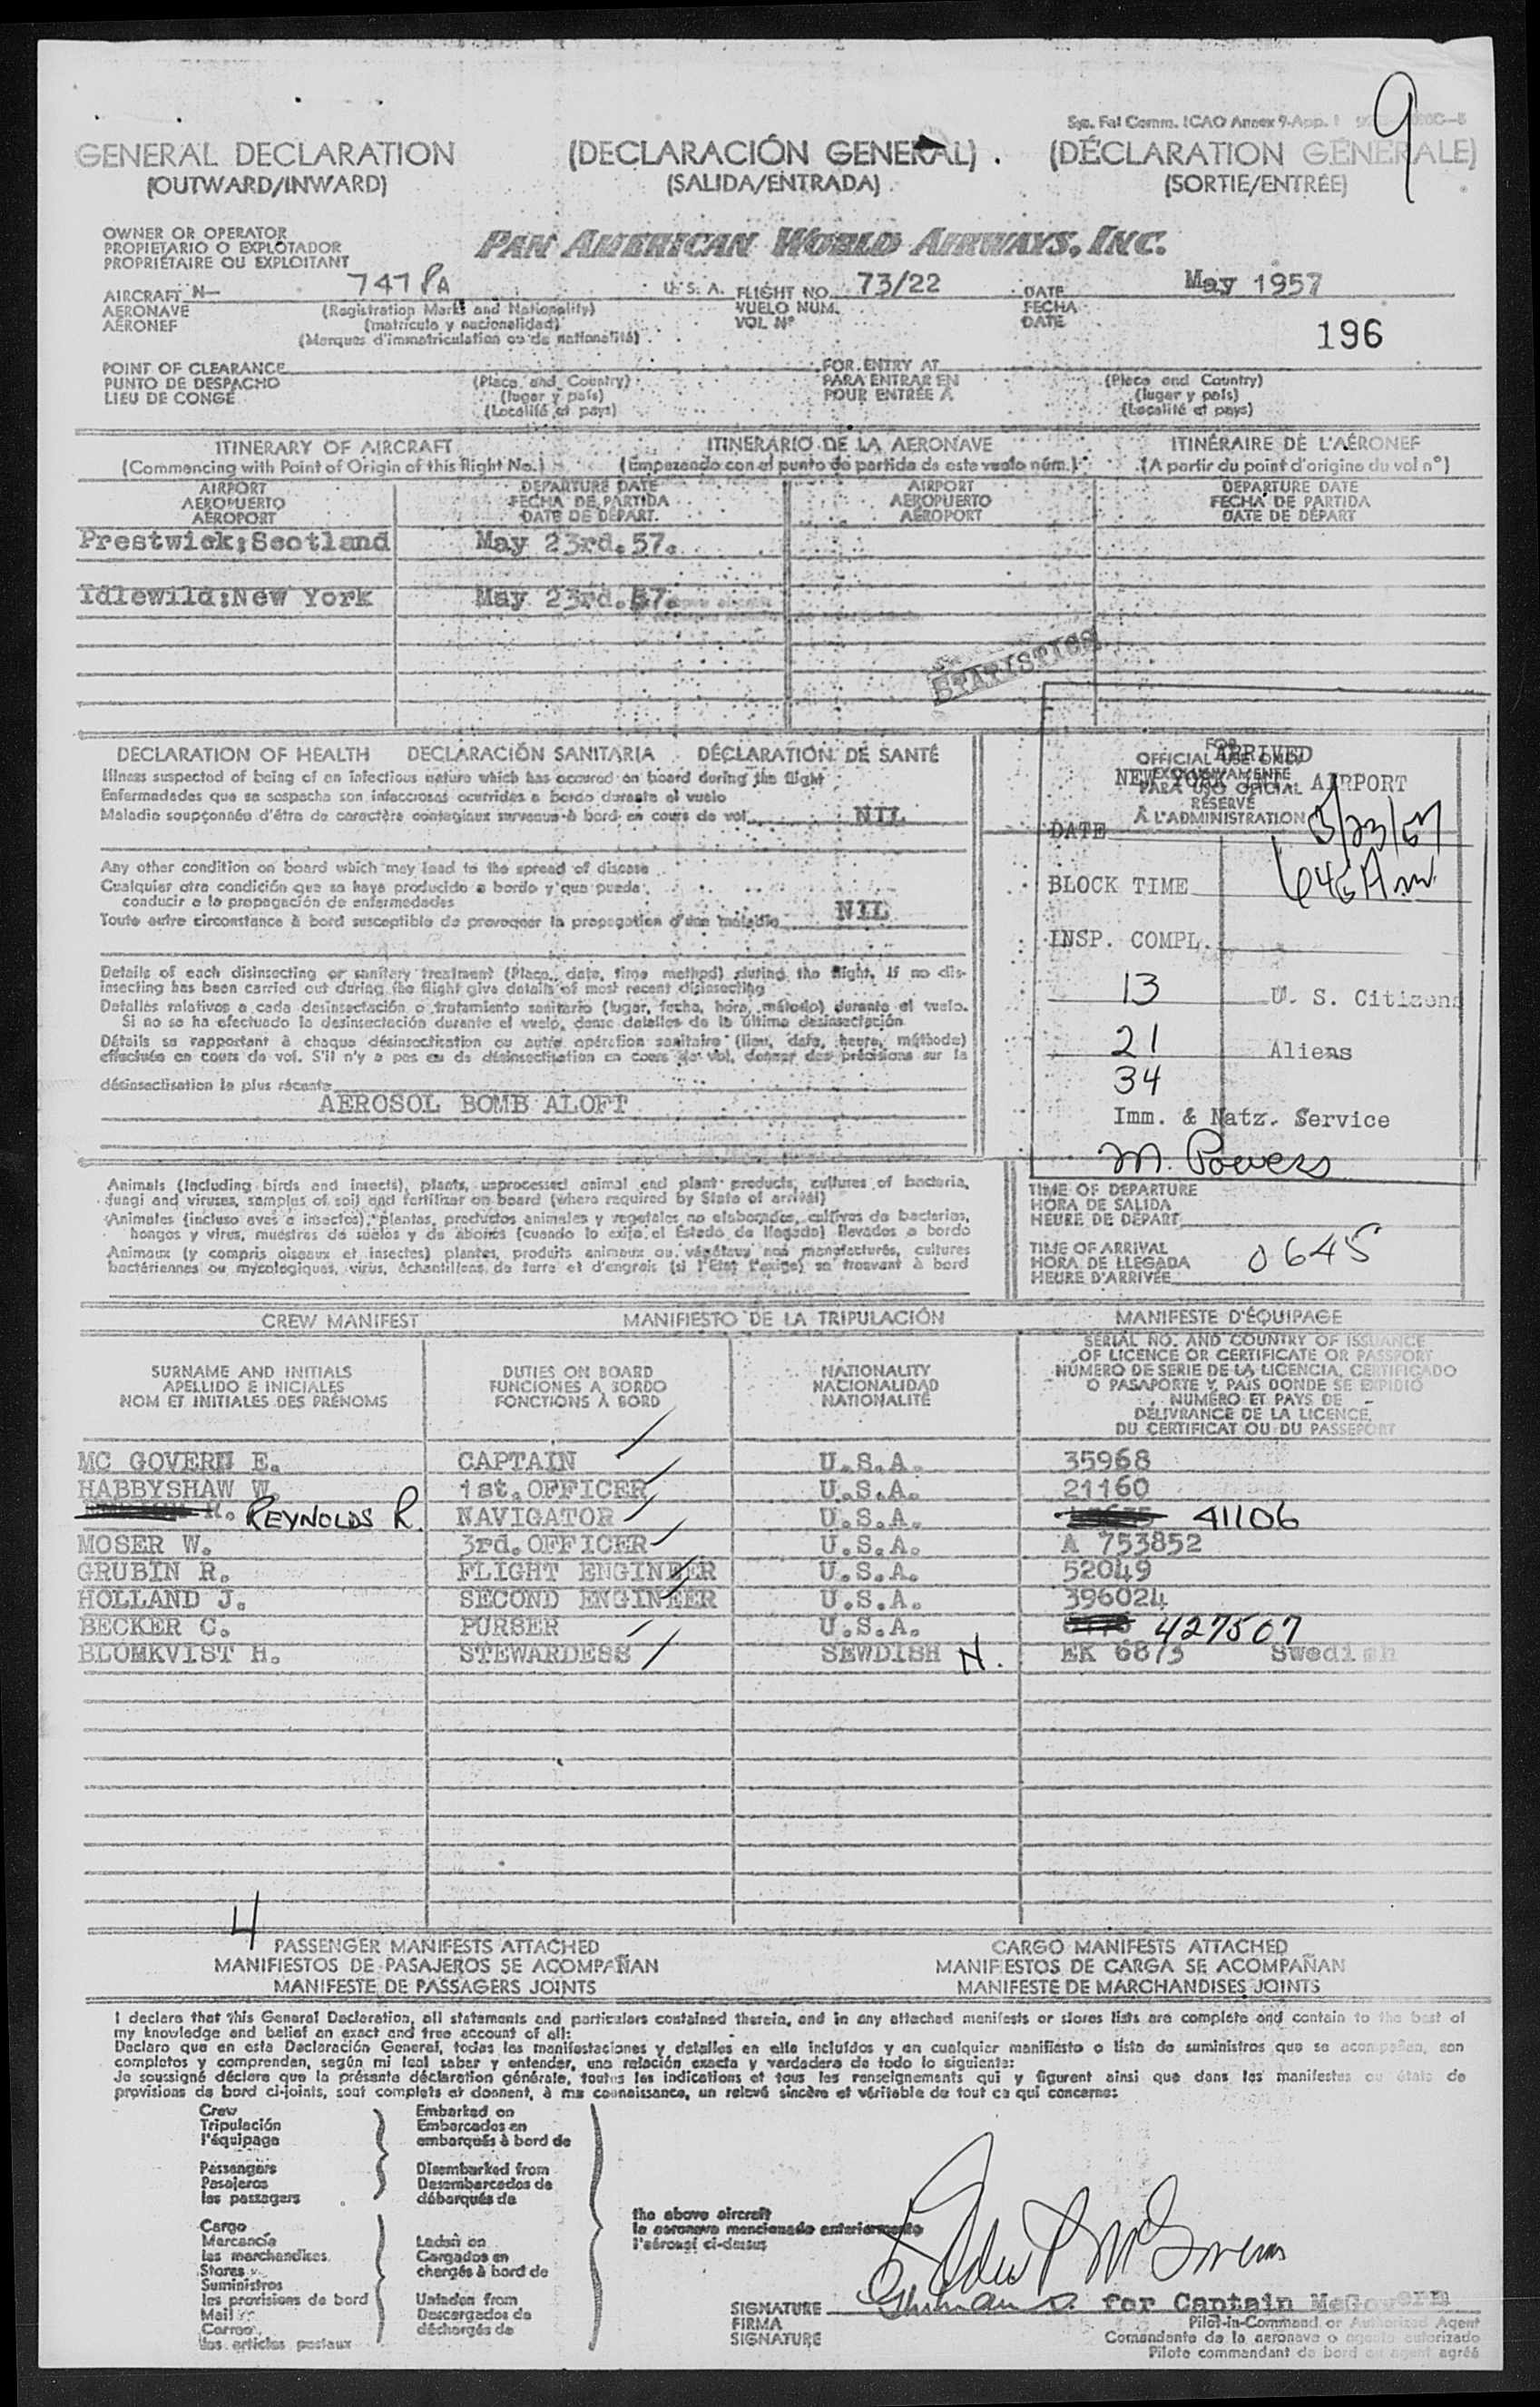 9
Spe. Fal Comm. ICAO Annex 9-App. 1
GENERAL DECLARATION (DECLARACIÓN GENERAL) (DÉCLARATION GÉNÉRALE)
(OUTWARD/INWARD) (SALIDA/ENTRADA) (SORTIE/ENTRÉE)
OWNER OR OPERATOR
PROPIETARIO O EXPLOTADOR
PROPRIÉTAIRE OU EXPLOITANT
PAN AMERICAN WORLD AIRWAYS, INC.
AIRCRAFT N- 747 PA U. S. A. FLIGHT NO. 73/22 DATE May 1957
AERONAVE (Registration Marks and Nationality) VUELO NÚM. FECHA
AÉRONEF (matrícula y nacionalidad) VOL Nº DATE
(Marques d'immatriculation ou de nationalité)
196
POINT OF CLEARANCE FOR ENTRY AT
PUNTO DE DESPACHO (Place and Country) PARA ENTRAR EN (Place and Country)
LIEU DE CONGÉ (lugar y país) POUR ENTRÉE À (lugar y país)
(Localité et pays) (Localité et pays)
ITINERARY OF AIRCRAFT ITINERARIO DE LA AERONAVE ITINÉRAIRE DE L'AÉRONEF
(Commencing with Point of Origin of this flight No.) (Empezando con el punto de partida de este vuelo núm.) (A partir du point d'origine du vol nº)
AIRPORT DEPARTURE DATE AIRPORT DEPARTURE DATE
AEROPUERTO FECHA DE PARTIDA AEROPUERTO FECHA DE PARTIDA
AÉROPORT DATE DE DÉPART. AÉROPORT DATE DE DÉPART
Prestwick;Scotland May 23rd.57.
Idlewild;New York May 23rd.57.
STATISTICS
DECLARATION OF HEALTH DECLARACIÓN SANITARIA DÉCLARATION DE SANTÉ
Illness suspected of being of an infectious nature which has occured on board during the flight
Enfermedades que se sospecha son infacciosas ocurridas a bordo durante el vuelo
Maladie soupçonnée d'être de caractère contagieux survenue à bord en cours de vol NIL
Any other condition on board which may lead to the spread of disease
Cualquier otra condición que se haya producido a bordo y que pueda
conducir a la propagación de enfermedades
Toute autre circonstance à bord susceptible de provoquer la propagation d'une maladie NIL
Details of each disinsecting or sanitary treatment (Place, date, time method) during the flight, If no dis-
insecting has been carried out during the flight give details of most recent disinsecting
Detalles relativos a cada desinsectación o tratamiento sanitario (lugar, fecha, hora, método) durante el vuelo.
Si no se ha efectuado la desinsectación durante el vuelo, dense detalles de la última desinsectación
Détails se rapportant à chaque désinsectisation ou autre opération sanitaire (lieu, date, heure, méthode)
effectuée en cours de vol. S'il n'y a pas eu de désinsectisation en cours de vol, donner des précisions sur la
désinsectisation la plus récente
AEROSOL BOMB ALOFT
FOR
OFFICIAL USE ONLY
EXCLUSIVAMENTE
PARA USO OFICIAL
RÉSERVÉ
À L'ADMINISTRATION
ARRIVED
NEW YORK INT. AIRPORT
DATE 5/23/57
BLOCK TIME 646 Am.
INSP. COMPL.
13 U. S. Citizens
21 Aliens
34
Imm. & Natz. Service
M. Powers
Animals (including birds and insects), plants, unprocessed animal and plant products, cultures of bacteria,
fungi and viruses, samples of soil and fertilizer on board (where required by State of arrival)
Animales (incluso aves e insectos), plantas, productos animales y vegetales no elaborados, cultivos de bacterias,
hongos y virus, muestras de suelos y de abonos (cuando lo exija el Estado de llegada) llevados a bordo
Animaux (y compris oiseaux et insectes) plantes, produits animaux ou végétaux non manufacturés, cultures
bactériennes ou mycologiques, virus, échantillons de terre et d'engrais (si l'Etat l'exige) se trouvant à bord
TIME OF DEPARTURE
HORA DE SALIDA
HEURE DE DÉPART
TIME OF ARRIVAL
HORA DE LLEGADA 0645
HEURE D'ARRIVÉE
CREW MANIFEST MANIFIESTO DE LA TRIPULACIÓN MANIFESTE D'ÉQUIPAGE
SURNAME AND INITIALS DUTIES ON BOARD NATIONALITY
APELLIDO E INICIALES FUNCIONES A BORDO NACIONALIDAD
NOM ET INITIALES DES PRÉNOMS FONCTIONS À BORD NATIONALITÉ
SERIAL NO. AND COUNTRY OF ISSUANCE
OF LICENCE OR CERTIFICATE OR PASSPORT
NÚMERO DE SERIE DE LA LICENCIA, CERTIFICADO
O PASAPORTE Y PAÍS DONDE SE EXPIDIÓ
NUMÉRO ET PAYS DE
DÉLIVRANCE DE LA LICENCE,
DU CERTIFICAT OU DU PASSEPORT
MC GOVERN E. CAPTAIN U.S.A. 35968
HABBYSHAW W. 1st.OFFICER U.S.A. 21160
R. REYNOLDS R. NAVIGATOR U.S.A. 41106
MOSER W. 3rd.OFFICER U.S.A. A 753852
GRUBIN R. FLIGHT ENGINEER U.S.A. 52049
HOLLAND J. SECOND ENGINEER U.S.A. 396024
BECKER C. PURSER U.S.A. 427507
BLOMKVIST H. STEWARDESS SEWDISH N. EK 6873 Swedish
4
PASSENGER MANIFESTS ATTACHED CARGO MANIFESTS ATTACHED
MANIFIESTOS DE PASAJEROS SE ACOMPAÑAN MANIFIESTOS DE CARGA SE ACOMPAÑAN
MANIFESTE DE PASSAGERS JOINTS MANIFESTE DE MARCHANDISES JOINTS
I declare that this General Declaration, all statements and particulars contained therein, and in any attached manifests or stores lists are complete and contain to the best of
my knowledge and belief an exact and true account of all:
Declaro que en esta Declaración General, todas las manifestaciones y detalles en ella incluídos y en cualquier manifiesto o lista de suministros que se acompañan, son
completos y comprenden, según mi leal saber y entender, una relación exacta y verdadera de todo lo siguiente:
Je soussigné déclare que la présente déclaration générale, toutes les indications et tous les renseignements qui y figurent ainsi que dans les manifestes ou états de
provisions de bord ci-joints, sont complets et donnent, à ma connaissance, un relevé sincère et véritable de tout ce qui concerne:
Crew Embarked on
Tripulación Embarcados en
l'équipage embarqués à bord de
Passengers Disembarked from
Pasajeros Desembarcados de
les passagers débarqués de
the above aircraft
la aeronave mencionada anteriormente
l'aéronef ci-dessus
Cargo
Mercancía Laden on
les marchandises Cargados en
Stores chargés à bord de
Suministros
les provisions de bord Unladen from
Mail Descargados de
Correo déchargés de
les articles postaux
SIGNATURE for Captain McGovern
FIRMA Pilot-in-Command or Authorized Agent
SIGNATURE Comandante de la aeronave o agente autorizado
Pilote commandant de bord ou agent agréé